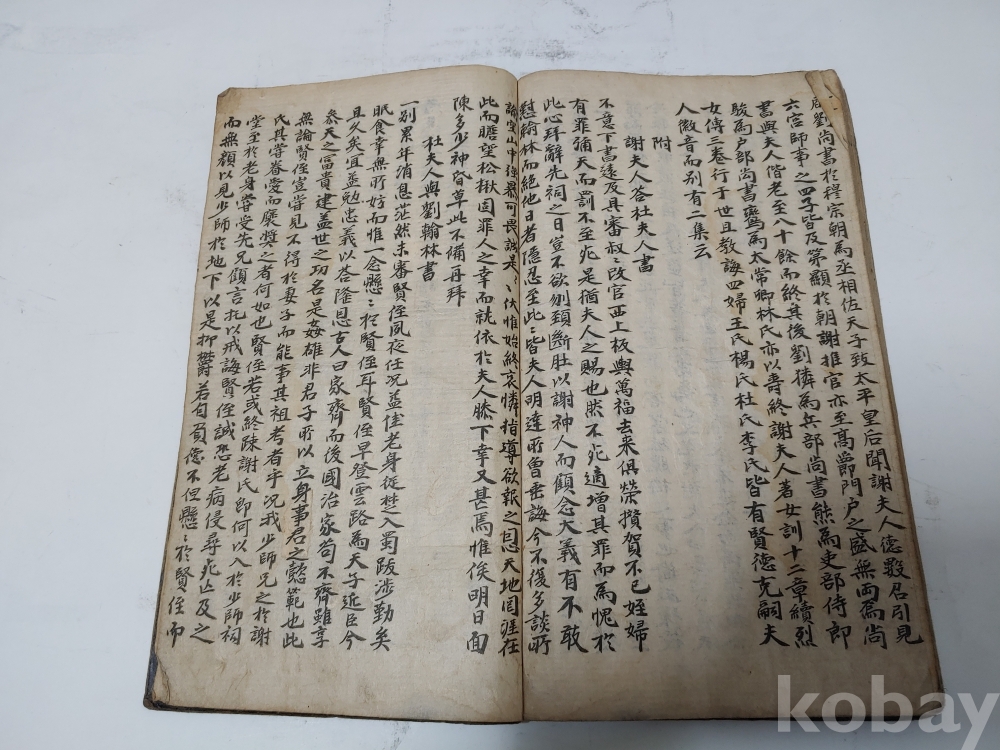 后劉尚書於穆宗朝為丞相佐天子致太平皇后聞謝夫人德數召引見
六宮師事之四子皆及第顯於朝謝推官亦至高爵門戶之盛無兩為尚
書與夫人偕老至八十餘而終其後劉獜為兵部尚書熊為吏部侍郎
駿為戶部尚書鸞為太常卿林氏亦以壽終謝夫人著女訓十二章續烈
女傳三卷行于世且教誨四婦王氏楊氏杜氏李氏皆有賢德克嗣夫
人徽音而别有二集云
附
謝夫人答杜夫人書
不意下書遠及具審叔〻改官西上板輿萬福去来俱榮攢賀不已姪婦
有罪彌天而罰不至死是猶夫人之賜也然不死適增其罪而為愧於
此心拜辭先祠之日豈不欲刎頸斷肚以謝神人而顧念大義有不敢
慰翰林而絕他日者隱忍至此〻皆夫人明達所曾垂誨今不復多談所
諭空山中強暴可畏誠是〻伏惟始終哀憐指導欲報之恩天地罔涯在
此而瞻望松楸固罪人之幸而就依於夫人膝下幸又甚焉惟俟明日面
陳多少神昏草此不備再拜
杜夫人與劉翰林書
一别累年消息茫然未審賢侄夙夜任况益佳老身從楚入蜀跋涉勤矣
眠食幸無所妨而惟一念懸〻於賢侄耳賢侄早登雲路為天子近臣今
且久矣宜益勉忠義以答隆恩古人曰家齊而後國治家苟不齊雖享
叅天之富貴建盖世之功名是奸雄非君子所以立身事君之懿範也此
無論賢侄豈嘗見不得於妻子而能事其祖考者乎况我少師兄之於謝
氏其嘗眷愛而麋獎之者何如也賢侄若或終踈謝氏即何以入於少師祠
堂至於老身嘗受先兄傾言托以戒誨賢侄誠恐老病侵尋死亡及之
而無顏以見少師於地下以是抑欝若有負德不但懸〻於賢侄而
kobay